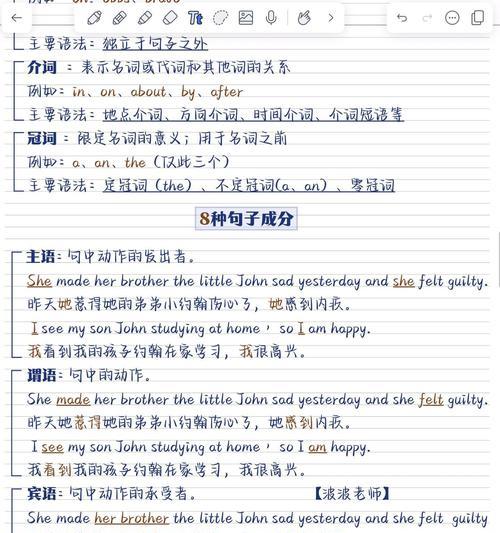 主要语法：独立于句子之外
介词 ：表示名词或代词和其他词的关系
例如：in、on、about、by、after
主要语法：地点介词、方向介词、时间介词、介词短语等
冠词 ：限定名词的意义；用于名词之前
例如：a、an、the（仅此三个）
主要语法：定冠词（the）、不定冠词(a、an）、零冠词
8种句子成分
主语：句中动作的发出者。
She made her brother the little John sad yesterday and she felt guilty.
昨天她惹得她的弟弟小约翰伤心了，她感到内疚。
I see my son John studying at home，so I am happy.
我看到我的孩子约翰在家学习，我很高兴。
谓语：句中的动作。
She made her brother the little John sad yesterday and she felt guilty.
昨天她惹得她的弟弟小约翰伤心了，她感到内疚。
I see my son John studying at home，so I am happy.
我看到我的孩子约翰在家学习，我很高兴。
宾语：句中动作的承受者。 【波波老师】
She made her brother the little John sad yesterday and she felt guilty